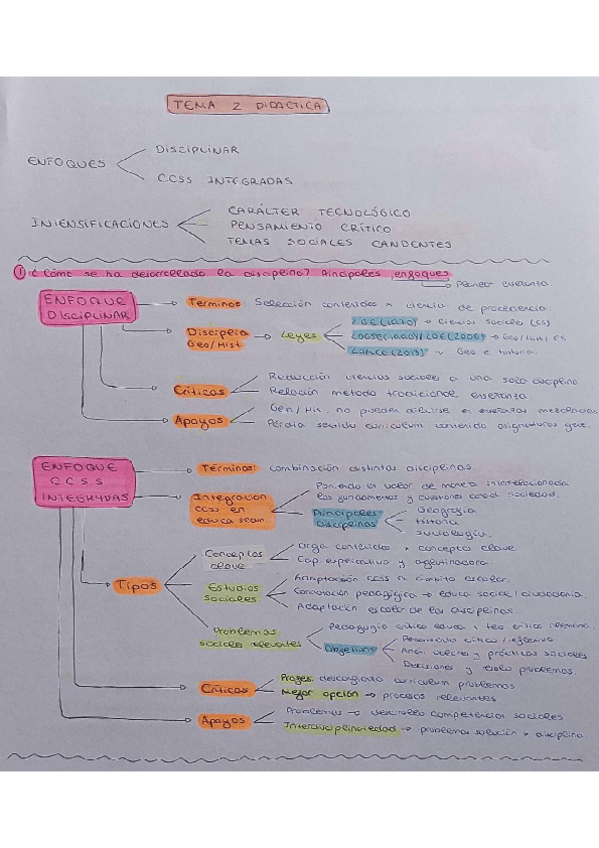 TEMA 2 DIDÁCTICA
ENFOQUES
DISCIPLINAR
CCSS INTEGRADAS
INTENSIFICACIONES
CARÁCTER TECNOLÓGICO
PENSAMIENTO CRÍTICO
TEMAS SOCIALES CANDENTES
① ¿Cómo se ha desarrollado la disciplina? Principales enfoques
ENFOQUE
DISCIPLINAR
Términos: Selección contenidos ciencia de procedencia
Disciplina
Geo/Hist.
Leyes
LGE (1970) → Ciencias Sociales (CS)
LOGSE (1990) / LOE (2006) → Geo/Hist/CS
LOMCE (2013) Geo e historia.
Críticas
Reducción ciencias sociales a una sola disciplina
Relación método tradicional enseñanza.
Apoyos
Geo/His. no pueden diluirse en enseñanzas mezcladas
Pérdida sentido curriculum contenido asignaturas
ENFOQUE
CCSS
INTEGRADAS
Términos: combinación distintas disciplinas.
Integración
CCSS en
Poniendo en valor de manera interrelacionada
los fundamentos y cuestiones sociedad.
Principales
disciplinas
Geografía
Historia
Sociología.
Tipos
Conceptos
clave
Orga contenidos conceptos clave
Cap explicativa y aglutinadora
Estudios
sociales
Adaptación CCSS ámbito escolar.
Connotación pedagógica → educa social / ciudadanía.
Adaptación escolar de las disciplinas.
Problemas
sociales relevantes
Pedagogía crítica educa teo crítica
Objetivos
Pensamiento crítico /
valores y prácticas sociales
Decisiones y problemas.
Críticas
Profes. curriculum problemas.
Mejor opción → procesos relevantes
Apoyos
Problemas → desarrollo competencias sociales
Interdisciplinariedad → problemas solución > disciplina.